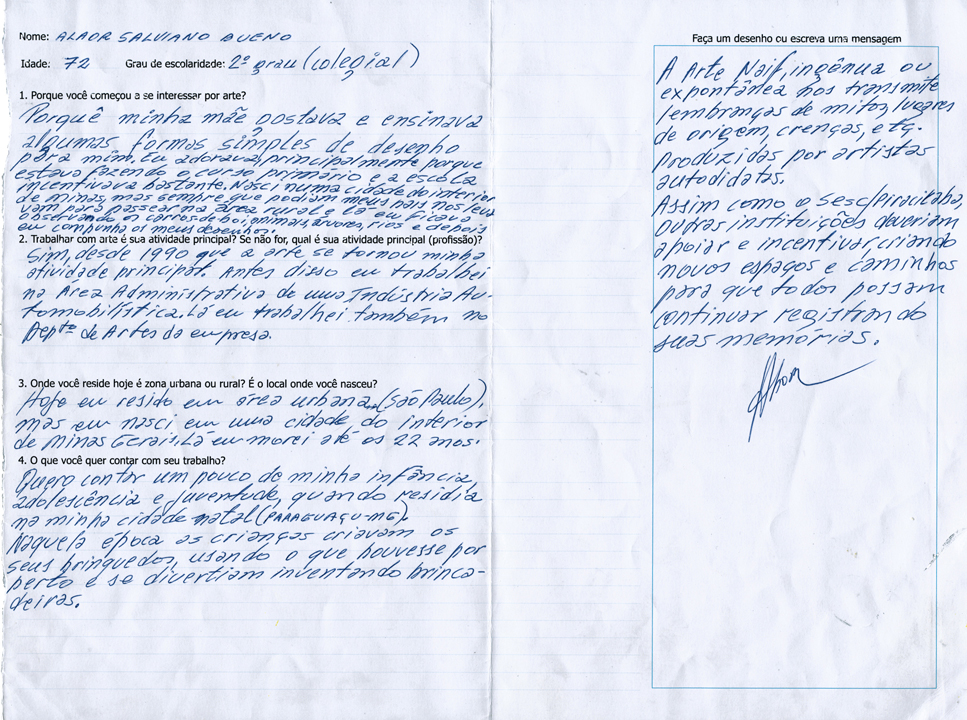 Nome: ALAOR SALVIANO BUENO
Idade: 72 Grau de escolaridade: 2º grau (colegial)
1. Porque você começou a se interessar por arte?
Porquê minha mãe gostava e ensinava
algumas formas simples de desenho
para mim. Eu adorava, principalmente porque
estava fazendo o curso primário e a escola
incentivava bastante. Nasci numa cidade do interior
de minas, mas sempre que podiam meus pais nos leva
vam para passear na área rural e lá eu ficava
observando os carros de boi, animais, árvores, rios e depois
eu compunha os meus desenhos.
2. Trabalhar com arte é sua atividade principal? Se não for, qual é sua atividade principal (profissão)?
Sim, desde 1990 que a arte se tornou minha
atividade principal. Antes disso eu trabalhei
na Área Administrativa de uma Indústria Au-
tomobilística. Lá eu trabalhei também no
Deptº de Artes da empresa.
3. Onde você reside hoje é zona urbana ou rural? É o local onde você nasceu?
Hoje eu resido em área urbana (São Paulo),
mas eu nasci em uma cidade do interior
de Minas Gerais. Lá eu morei até os 22 anos.
4. O que você quer contar com seu trabalho?
Quero contar um pouco de minha infância,
adolescência e juventude, quando residia
na minha cidade natal (PARAGUAÇU-MG).
Naquela época as crianças criavam os
seus brinquedos, usando o que houvesse por
perto e se divertiam inventando brinca-
deiras.
Faça um desenho ou escreva uma mensagem
A Arte Naif, ingênua ou
expontânea nos transmite
lembranças de mitos, lugares
de origem, crenças, etc.
Produzidas por artistas
autodidatas.
Assim como o Sesc/Piracicaba,
outras instituições deveriam
apoiar e incentivar, criando
novos espaços e caminhos
para que todos possam
continuar registrando
suas memórias.